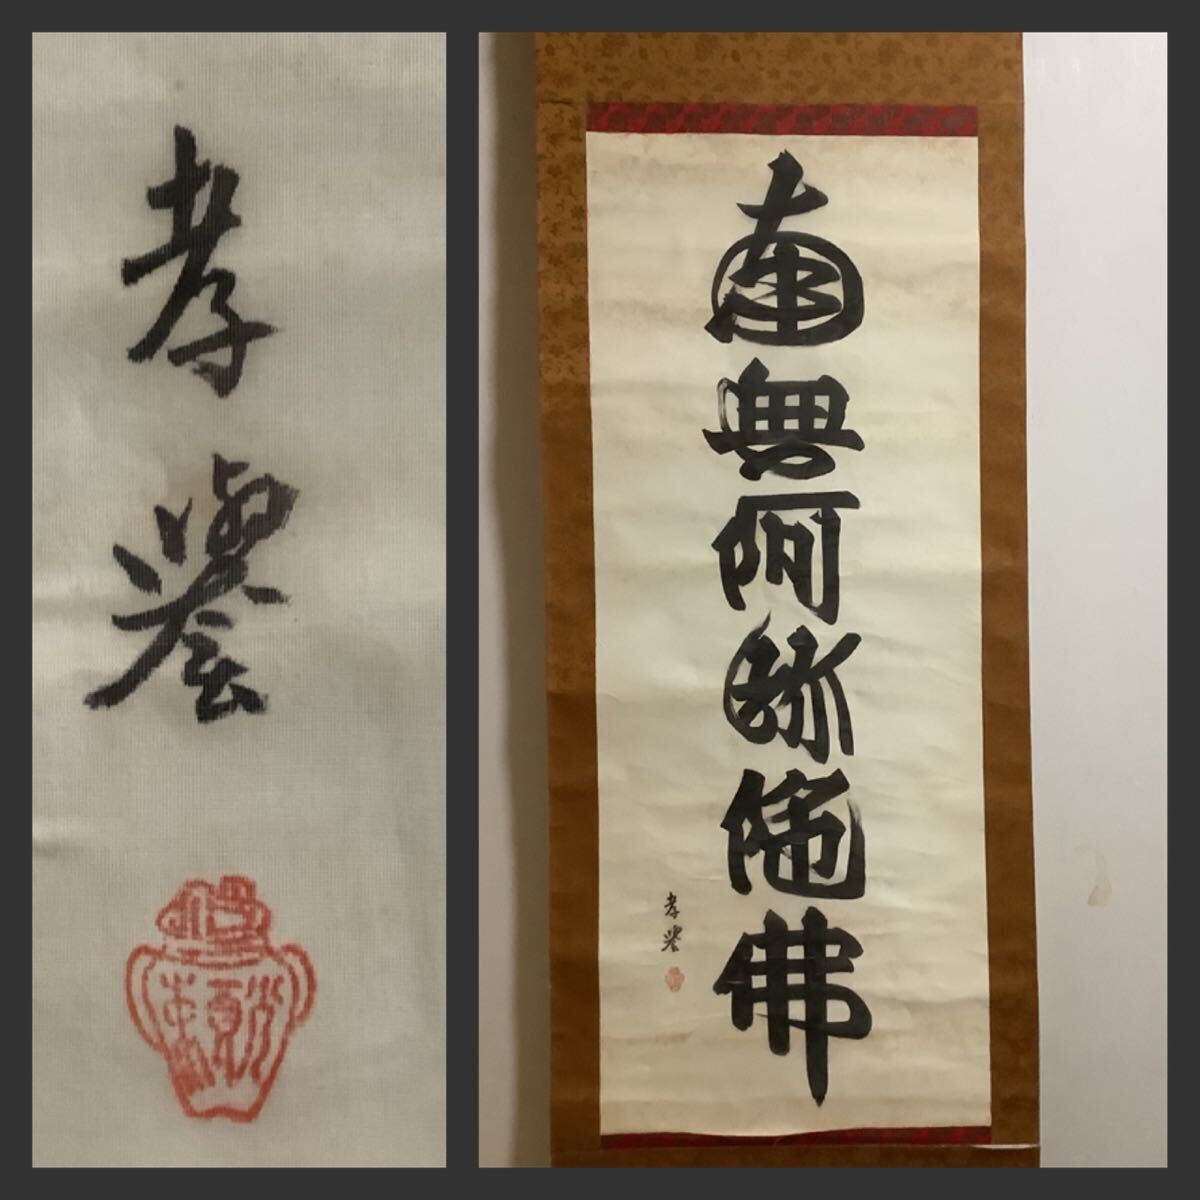 孝譽
南無阿弥陀佛
孝譽